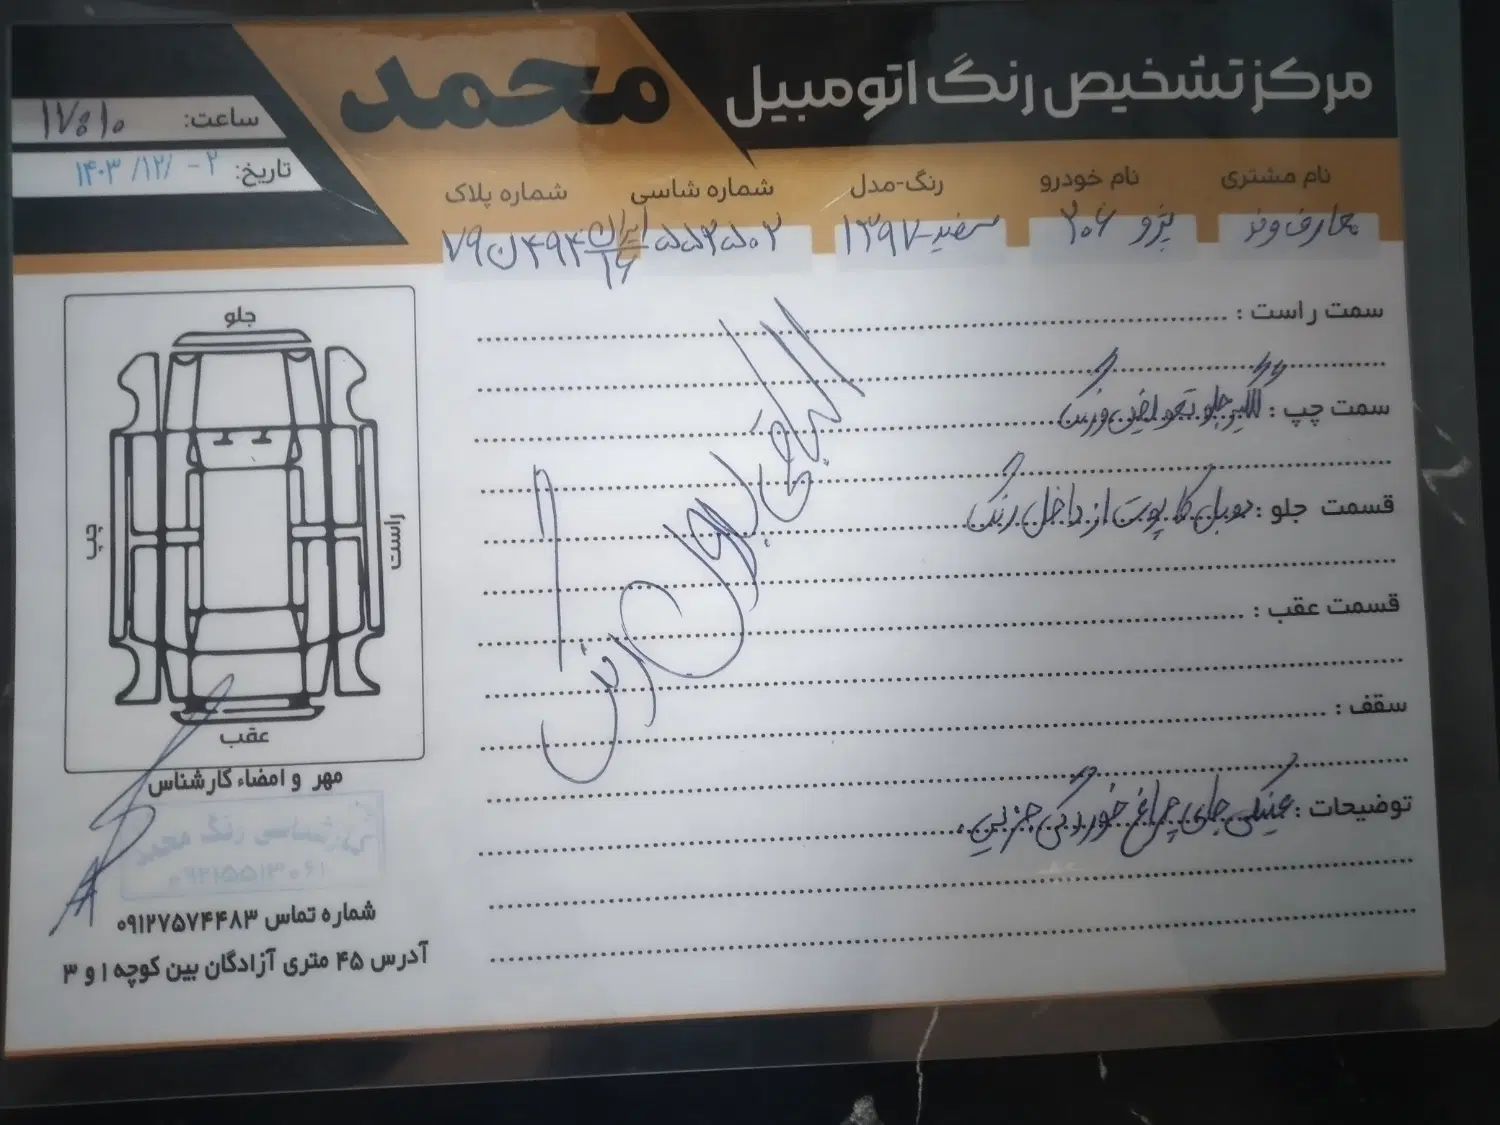 مرکز تشخیص رنگ اتومبیل محمد
ساعت: ۱۷:۱۰
تاریخ: ۱۴۰۳/۱۲/-۲
نام مشتری
نام خودرو
رنگ-مدل
شماره شاسی
شماره پلاک
عارف وند
پژو ۲۰۶
سفید-۱۳۹۷
۵۵۲۵۰۲
ایران ۱۶
۷۹ن۴۹۴
سمت راست :
سمت چپ : گلگیر جلو تعویض و رنگ
قسمت جلو : دوبل کاپوت از داخل رنگ
قسمت عقب :
سقف :
توضیحات : عینکی جای چراغ خوردگی جزیی
الباقی بدون رنگ
جلو
چپ
راست
عقب
مهر و امضاء کارشناس
شماره تماس ۰۹۱۲۷۵۷۴۴۸۳
آدرس ۴۵ متری آزادگان بین کوچه ۱ و ۳